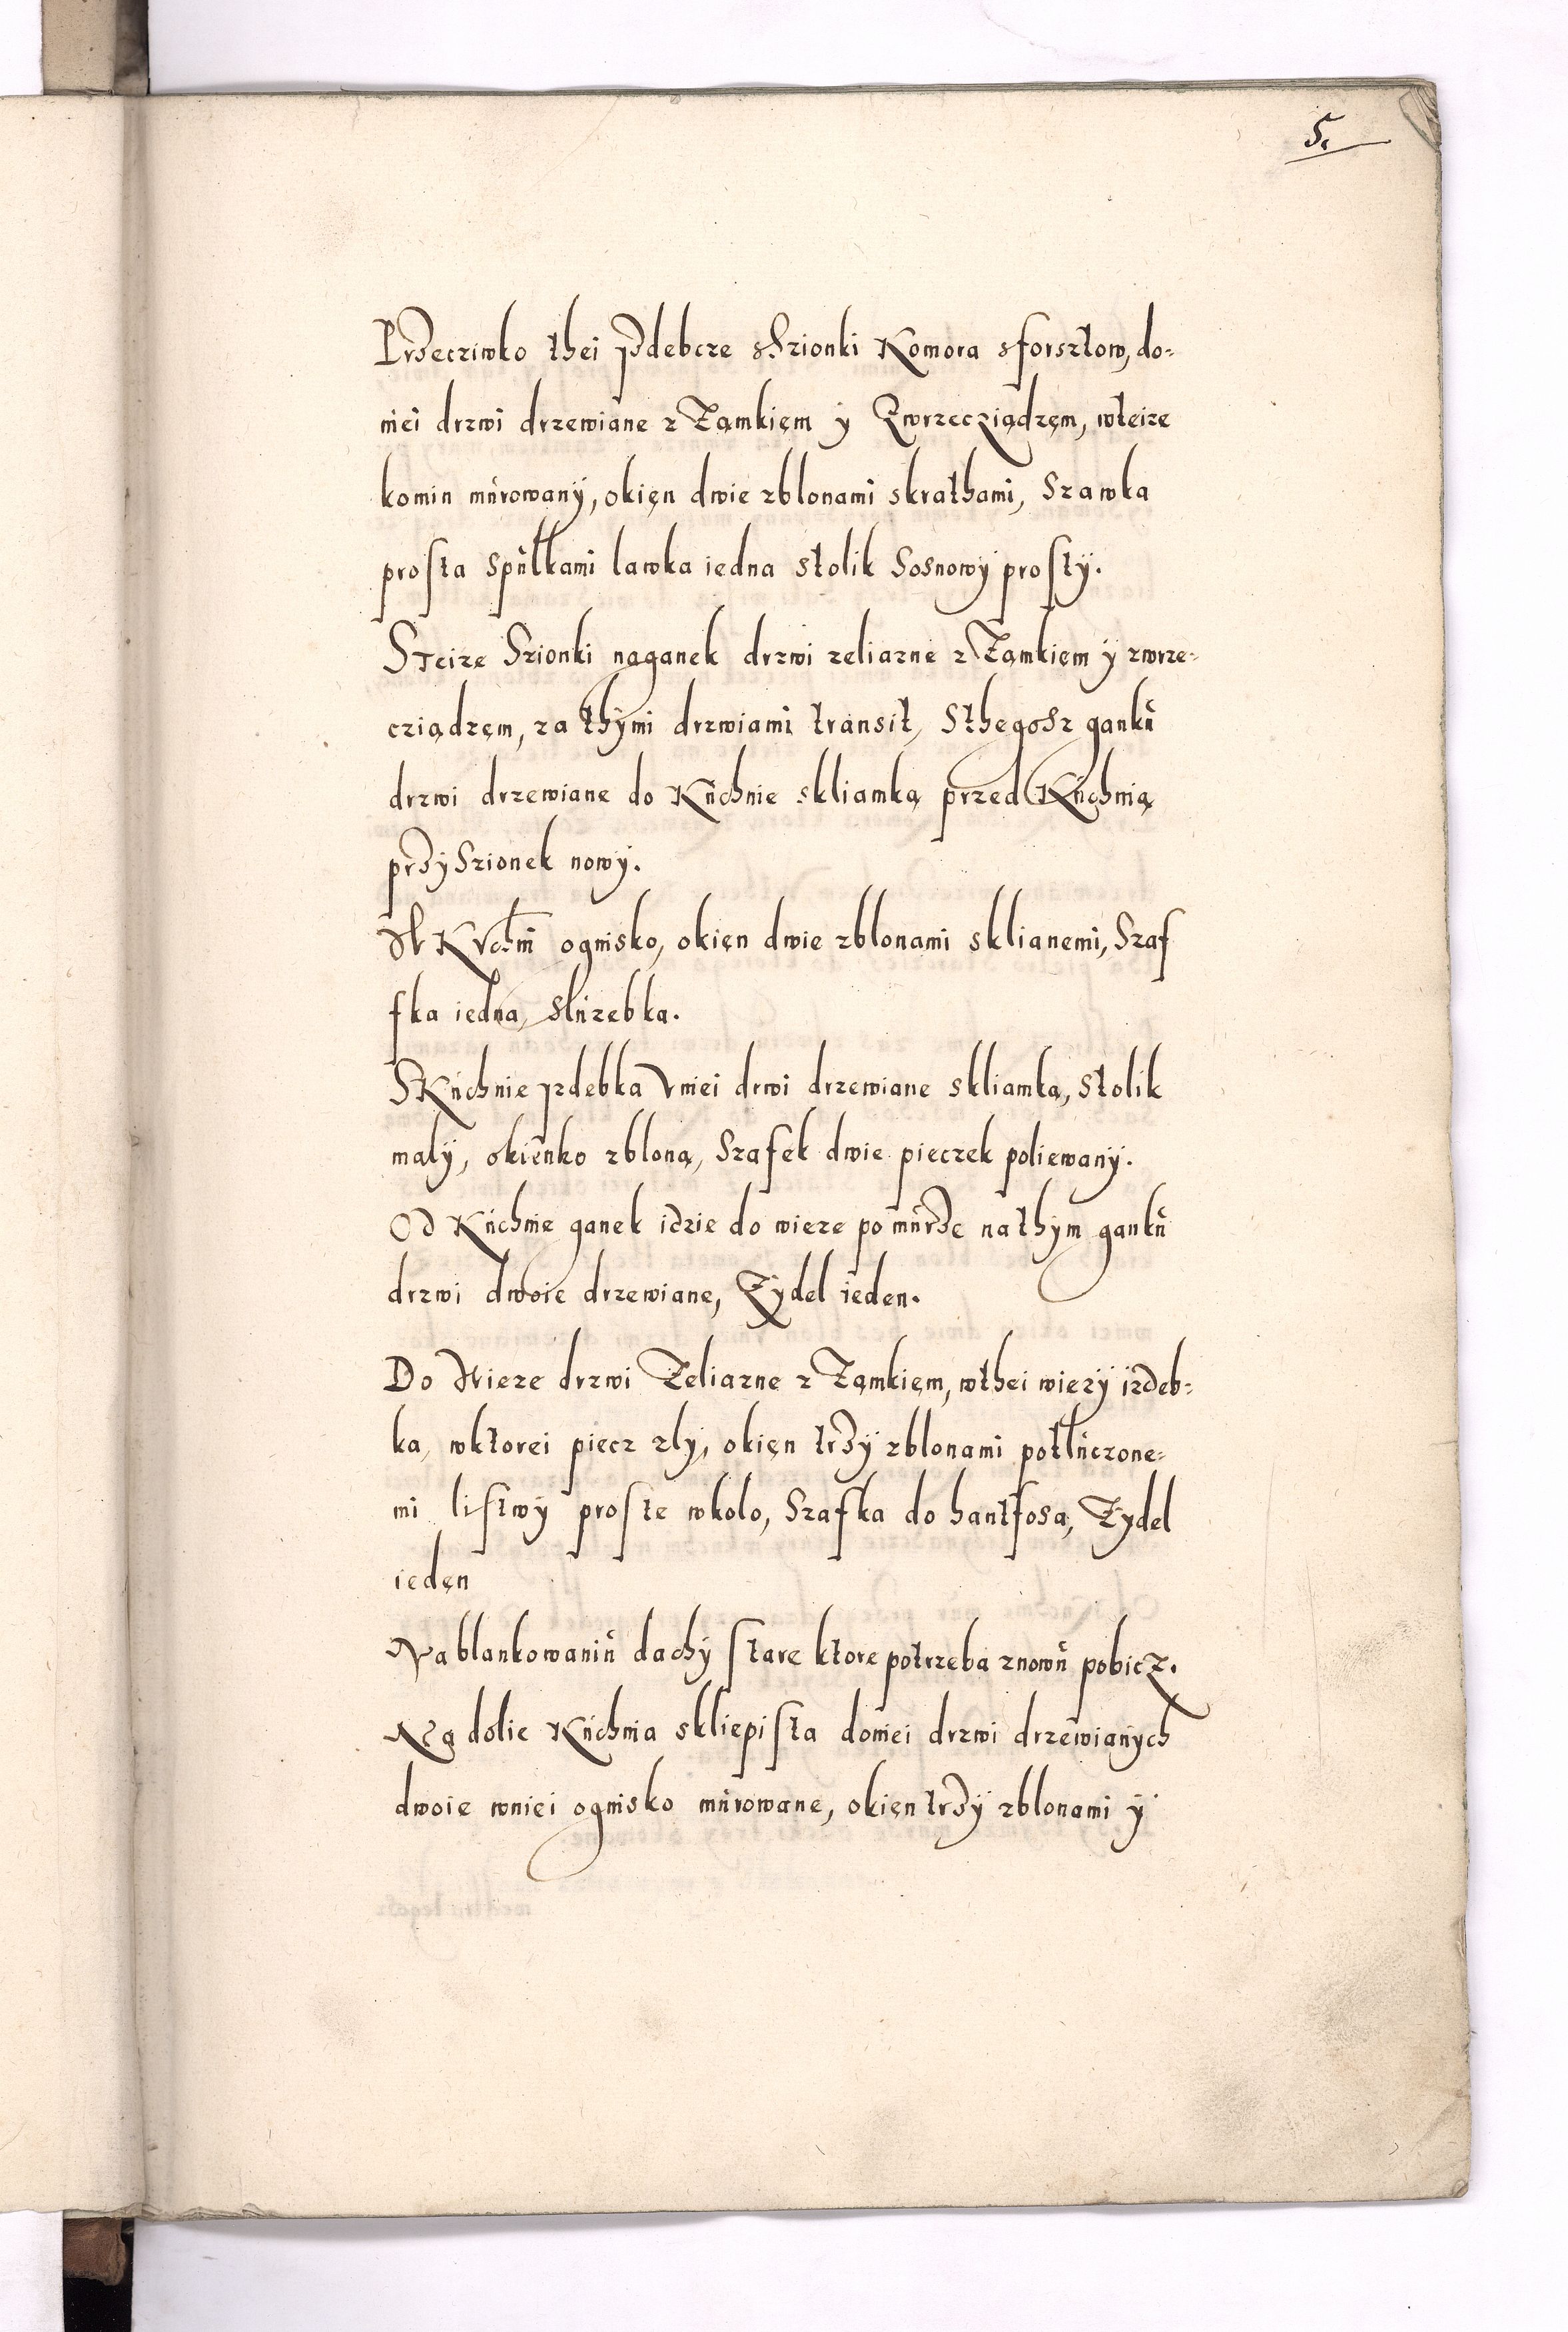 5.
Przecziwko thei yzdebcze Szionki Komora sforsztow, do-
niei drzwi drzewiane z Zamkięm ÿ Zwrzecziądzęm, wteize
komin můrowanÿ, okięn dwie zblonami skrathami, Szawka
prosta spůlkami lawka iedna stolik Sosnowÿ prostÿ.
Steize Szionki naganek drzwi zeliazne z Zamkięm ÿ zwrze-
cziądzęm, za thÿmi drzwiami transit, Sthegosz ganků
drzwi drzewiane do Kůchnie skliamką przed Kůchnią
przÿSzionek nowÿ.
W Kvchni ognisko, okięn dwie zblonami sklianemi, Szaf
fka iedna, slůzebka.
SKůchnie yzdebka Vniei drwi drzewiane skliamką, stolik
malÿ, okięnko zbloną, Szafek dwie pieczek poliewanÿ.
Od Kůchnie ganek idzie do wieze po můrze na thÿm ganků
drzwi dwoie drzewiane, Zÿdel ieden.
Do Wieze drzwi Zeliazne z Zamkięm, wthei wiezÿ izdeb-
ka, wktorei piecz zlÿ, okięn trzÿ zblonami potlůczone-
mi listwÿ proste wkolo, Szafka do hantfosa, Zÿdel
iedęn
Na blankowaniů dachÿ stare ktore potrzeba znowů pobicz.
Na dolie Kůchnia skliepista doniei drzwi drzewianÿch
dwoie wniei ognisko můrowane, okięn trzÿ zblonami ÿ